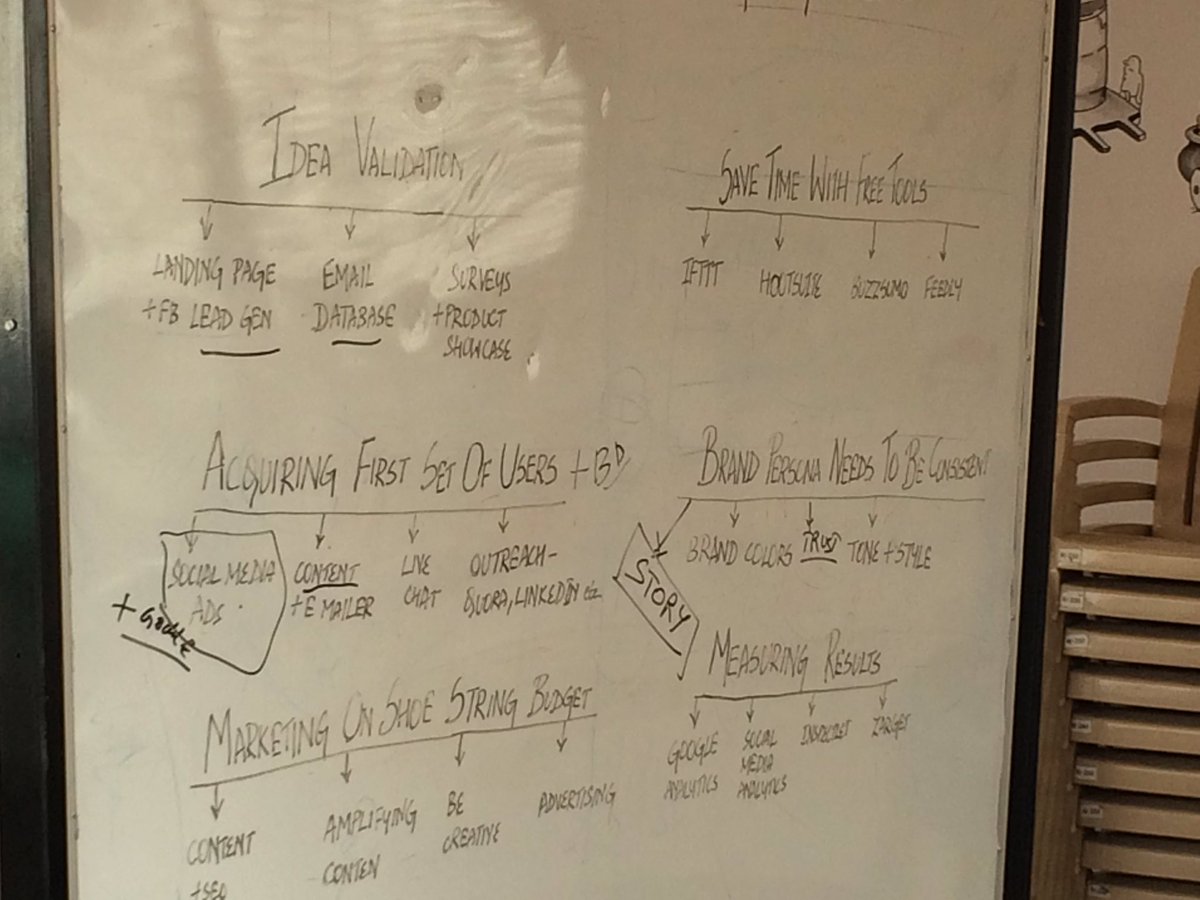 IDEA VALIDATION
LANDING PAGE
+FB LEAD GEN
EMAIL
DATABASE
SURVEYS
+PRODUCT
SHOWCASE
SAVE TIME WITH FREE TOOLS
IFTTT
HOUTSUITE
BUZZSUMO
FEEDLY
ACQUIRING FIRST SET OF USERS + BD
SOCIAL MEDIA
ADS
+ GOOGLE
CONTENT
+E MAILER
LIVE
CHAT
OUTREACH-
QUORA, LINKEDIN etc
BRAND PERSONA NEEDS TO BE CONSISTENT
STORY
BRAND COLORS
TRUST
TONE + STYLE
MARKETING ON SHOE STRING BUDGET
CONTENT
+SEO
AMPLIFYING
CONTEN
BE
CREATIVE
ADVERTISING
MEASURING RESULTS
GOOGLE
ANALYTICS
SOCIAL
MEDIA
ANALYTICS